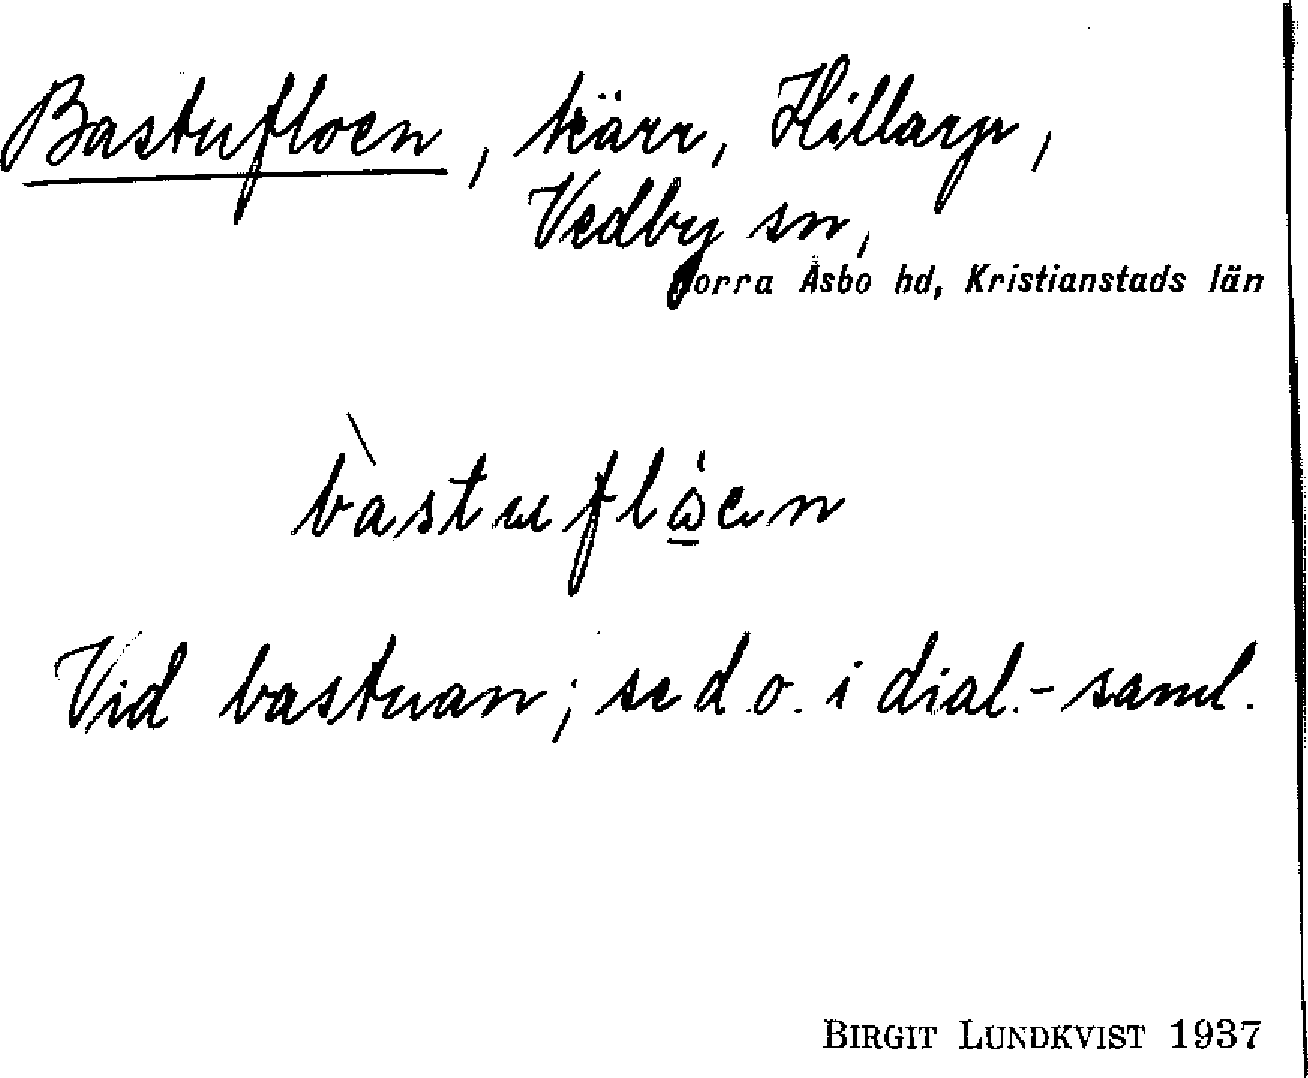 Bastufloen, kärr, Hillarp,
Vedby sn,
Norra Åsbo hd, Kristianstads län
bàstuflώ̲en
Vid bastuan; se d.o. i dial.-saml.
BIRGIT LUNDKVIST 1937